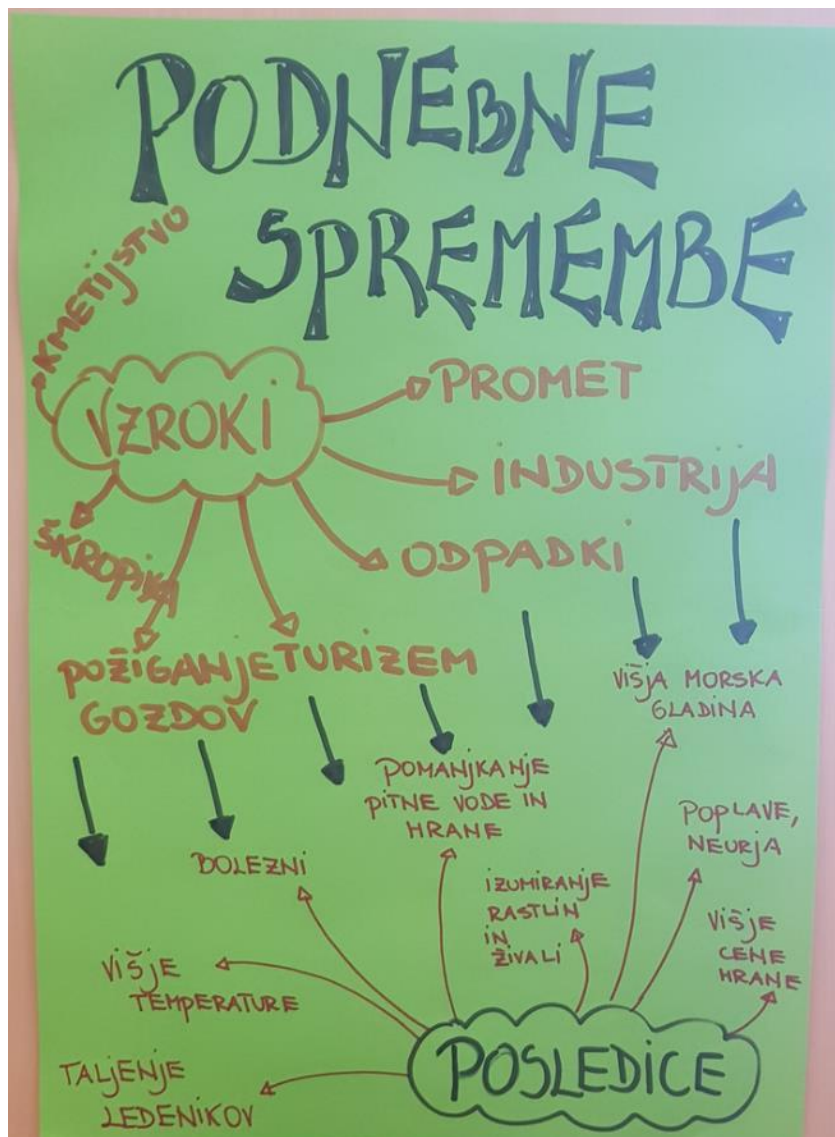 PODNEBNE
SPREMEMBE
KMETIJSTVO
VZROKI
PROMET
INDUSTRIJA
ODPADKI
ŠKROPIVA
POŽIGANJE
GOZDOV
TURIZEM
VIŠJA MORSKA
GLADINA
POMANJKANJE
PITNE VODE IN
HRANE
POPLAVE,
NEURJA
BOLEZNI
IZUMIRANJE
RASTLIN
IN
ŽIVALI
VIŠJE
CENE
HRANE
VIŠJE
TEMPERATURE
TALJENJE
LEDENIKOV
POSLEDICE